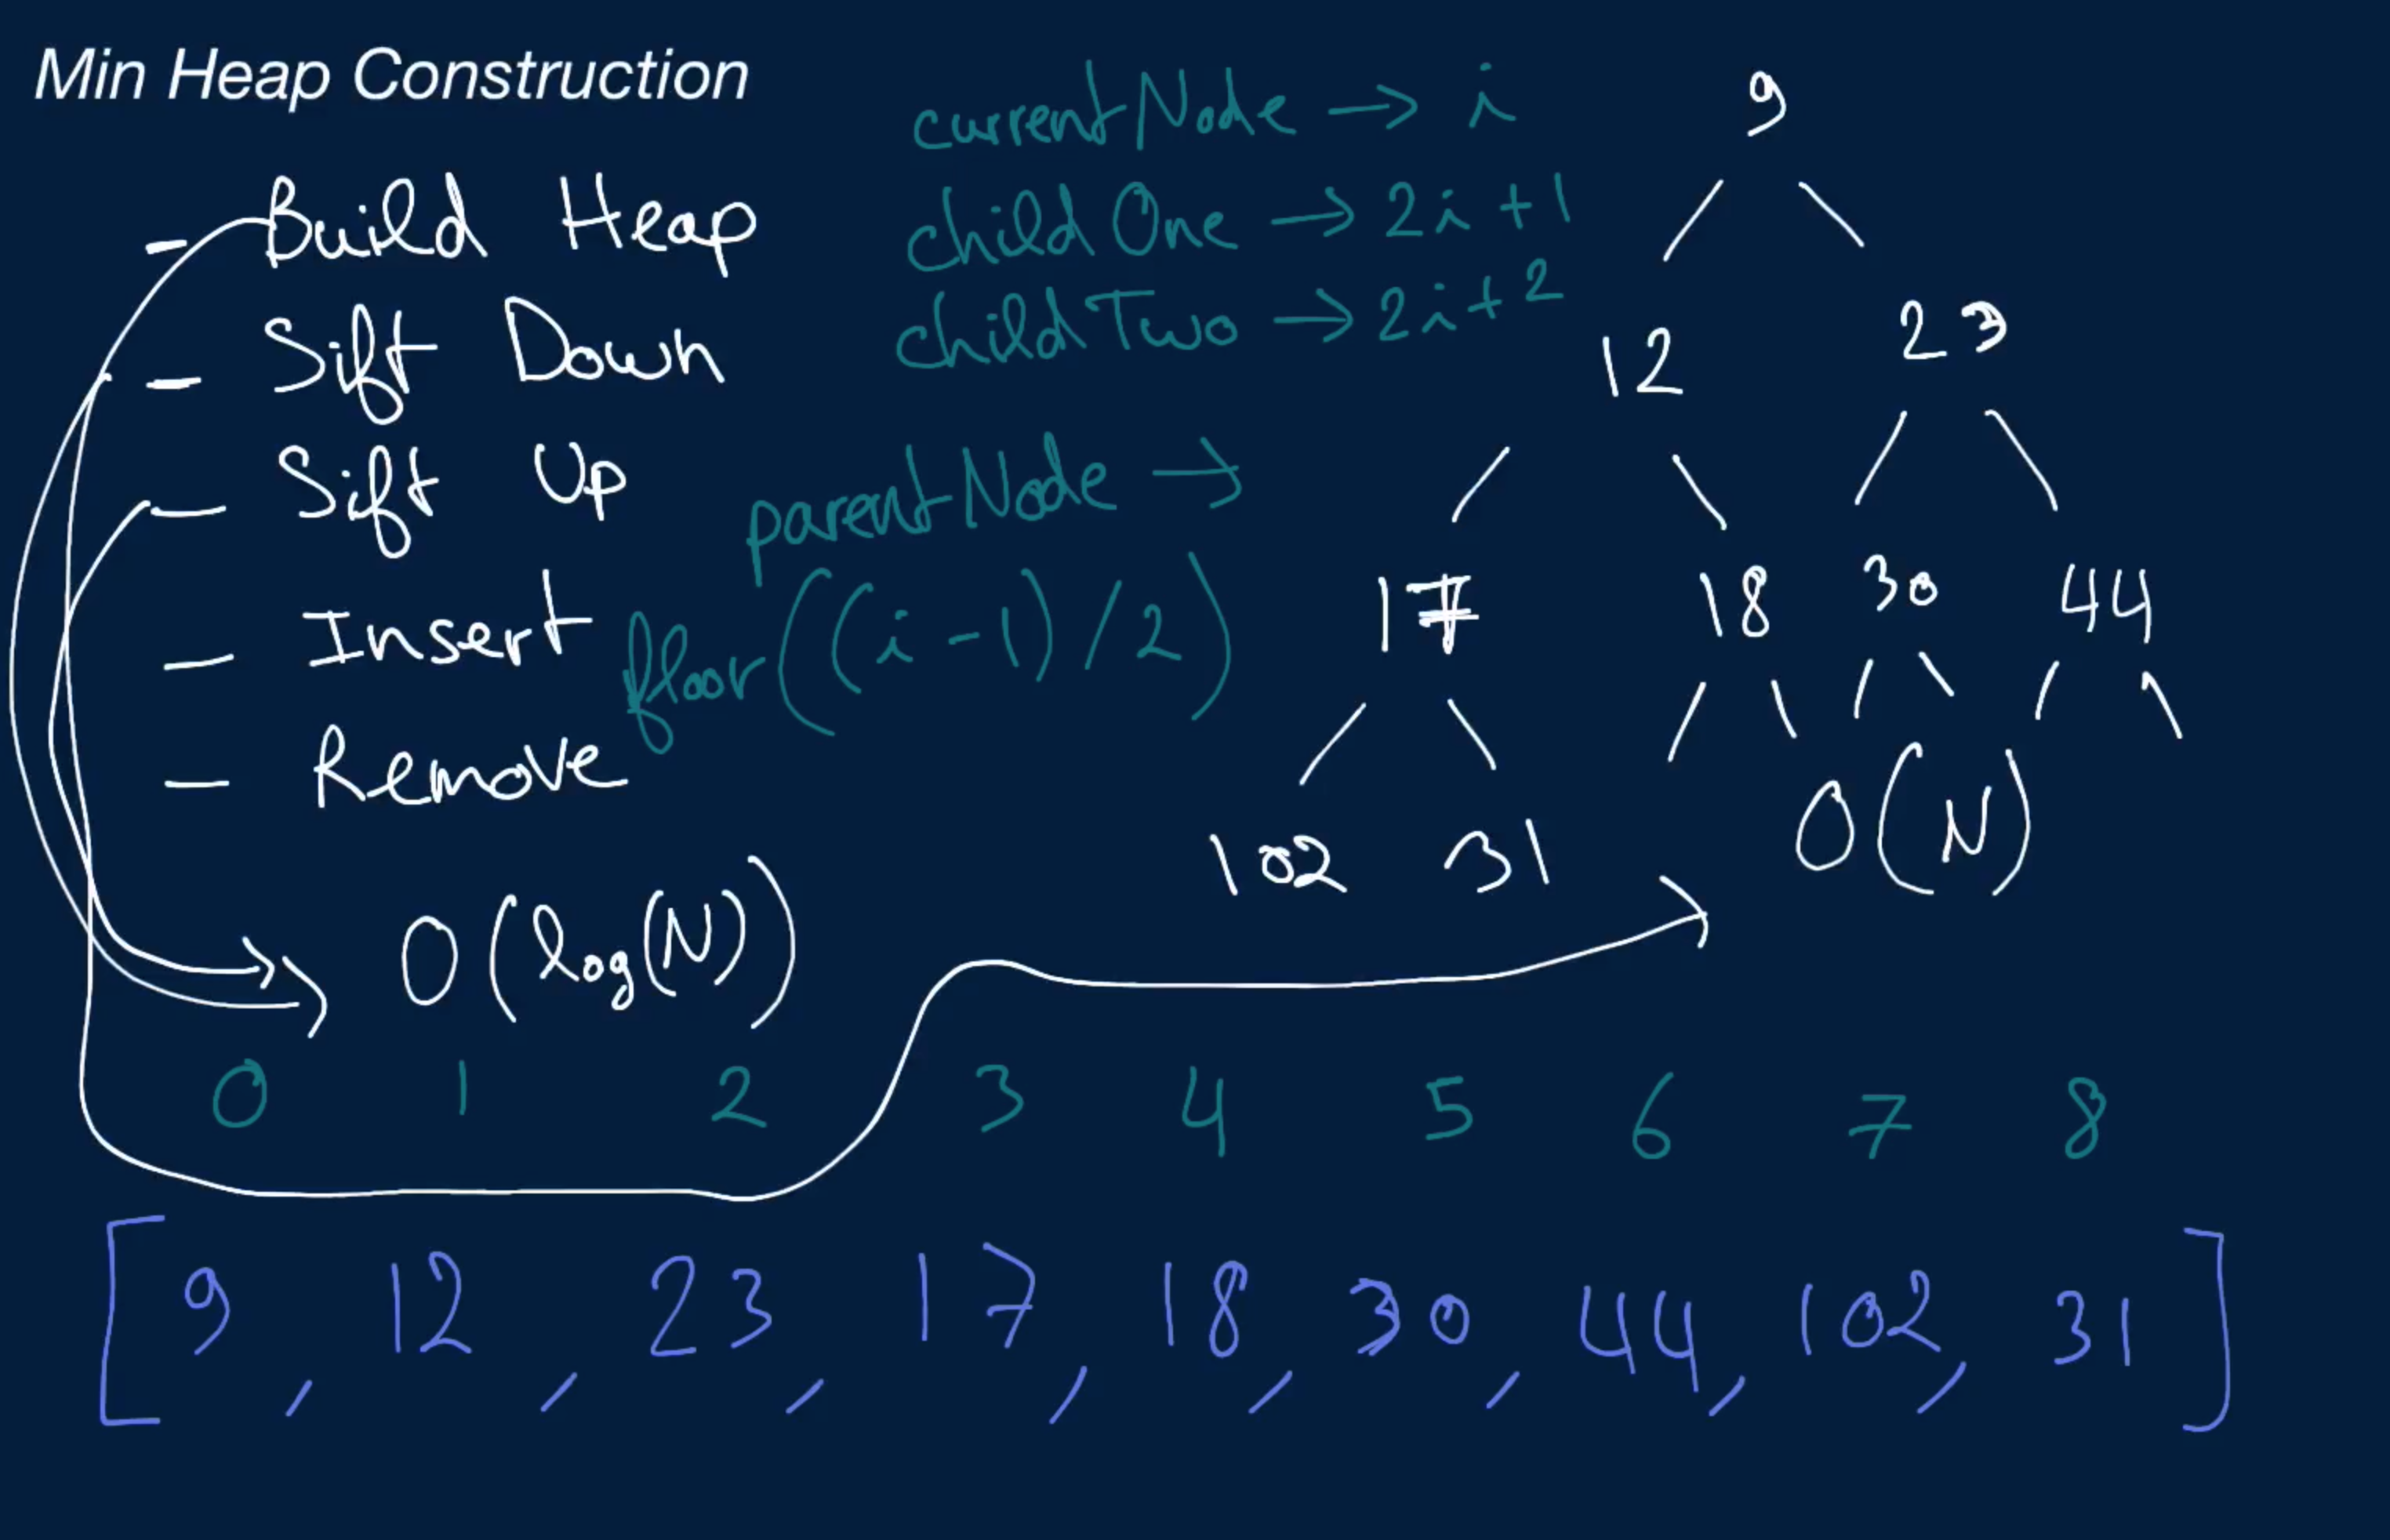 Min Heap Construction
- Build Heap
- Sift Down
- Sift Up
- Insert
- Remove
O(log(N))
currentNode → i
childOne → 2i+1
childTwo → 2i+2
parentNode →
floor((i-1)/2)
9
12 23
17 18 30 44
102 31
O(N)
0 1 2 3 4 5 6 7 8
[9, 12, 23, 17, 18, 30, 44, 102, 31]